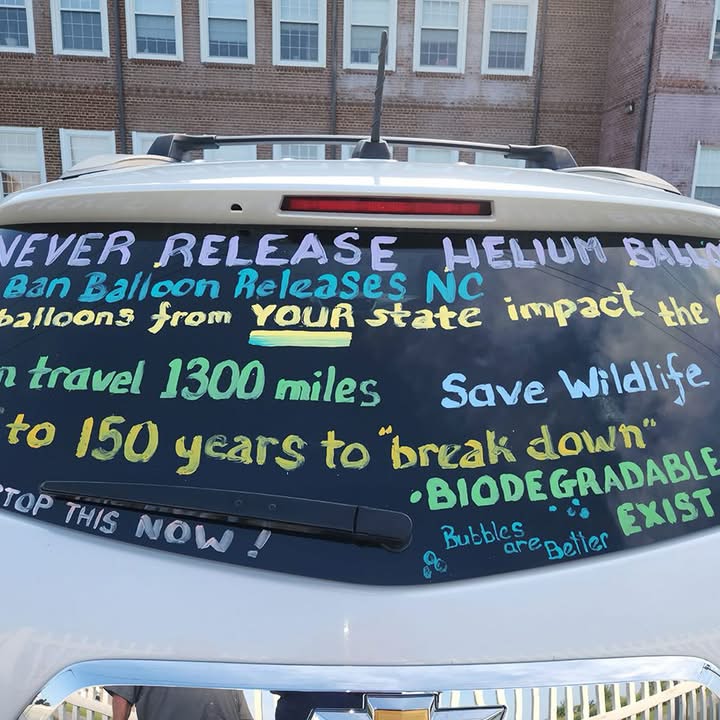 NEVER RELEASE HELIUM BALLO
Ban Balloon Releases NC
balloons from YOUR state impact the
n travel 1300 miles
Save Wildlife
to 150 years to "break down"
•BIODEGRADABLE
EXIST
TOP THIS NOW!
Bubbles
are Better